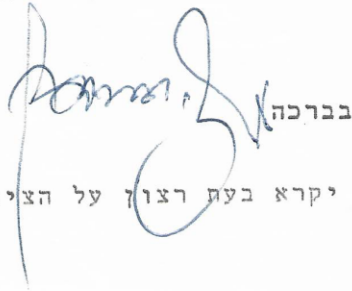 בברכה
יקרא בעת רצון על הצי